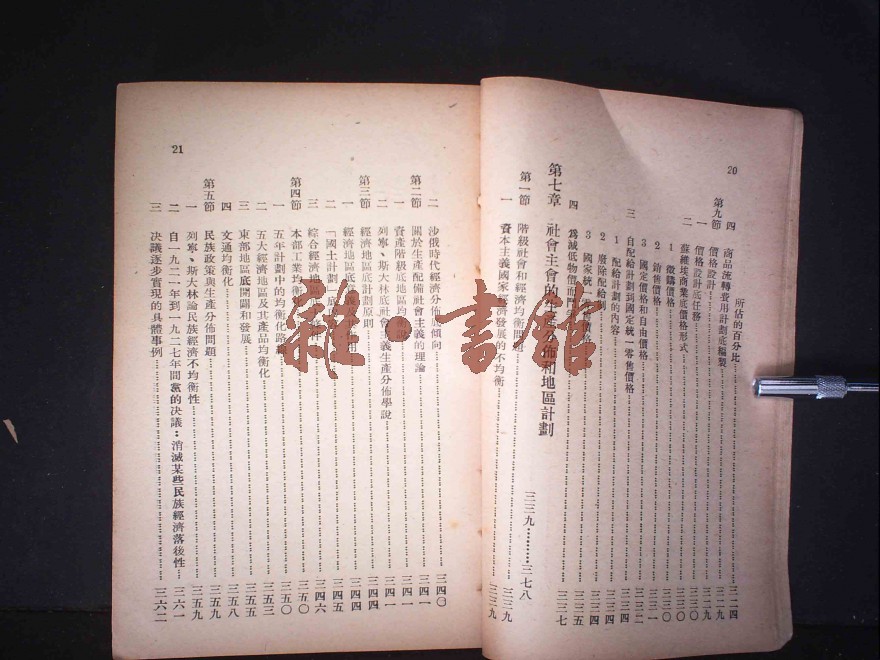 20
所佔的百分比
四 商品流轉費用計劃底編製
第九節 價格設計
一 價格設計底任務
二 蘇維埃商業底價格形式
1 徵購價格
2 銷售價格
3 國定價格和自由價格
三 自配給計劃到國定統一零售價格
1 配給計劃的內容
2 廢除配給制
3 國家統一
四 為減低物價而鬥
第七章 社會主會的生產分佈和地區計劃 三三九………三七八
第一節 階級社會和經濟均衡問題 三三九
一 資本主義國家經濟發展的不均衡 三三九
21
二 沙俄時代經濟分佈底傾向 三四〇
第二節 關於生產配備社會主義的理論 三四一
一 資產階級底地區均衡說 三四一
二 列寧、斯大林底社會主義生產分佈學說 三四四
第三節 經濟地區底計劃原則 三四四
一 經濟地區底意義 三四五
二 「國土計劃」底 三四五
三 綜合經濟地區 三四六
第四節 本部工業均衡 三五〇
一 五年計劃中的均衡化路線 三五〇
二 五大經濟地區及其產品均衡化 三五三
三 東部地區底開闢和發展 三五五
四 交通均衡化 三五八
第五節 民族政策與生產分佈問題 三五九
一 列寧、斯大林論民族經濟不均衡性 三五九
二 自一九二一年到一九二七年間黨的決議：消滅某些民族經濟落後性 三六一
三 決議逐步實現的具體事例 三六二
雜·書館